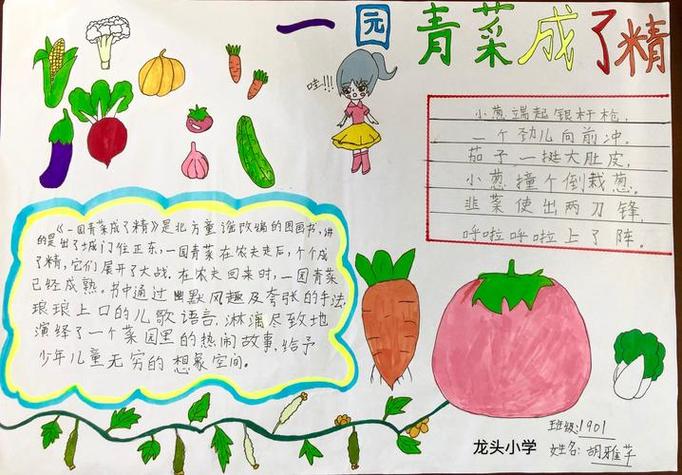 一园青菜成了精
哇!!!
小葱端起银杆枪，
一个劲儿向前冲。
茄子一挺大肚皮，
小葱撞个倒栽葱。
韭菜使出两刀锋，
呼啦呼啦上了阵。
《一园青菜成了精》是北方童谣改编的图画书，讲
的是出了城门往正东，一园青菜在农夫走后，个个成
了精，它们展开了大战，在农夫回来时，一园青菜
已经成熟。书中通过幽默风趣及夸张的手法，
琅琅上口的儿歌语言，淋漓尽致地
演绎了一个菜园里的热闹故事，给予
少年儿童无穷的想象空间。
班级:1901
龙头小学 姓名:胡雅芊